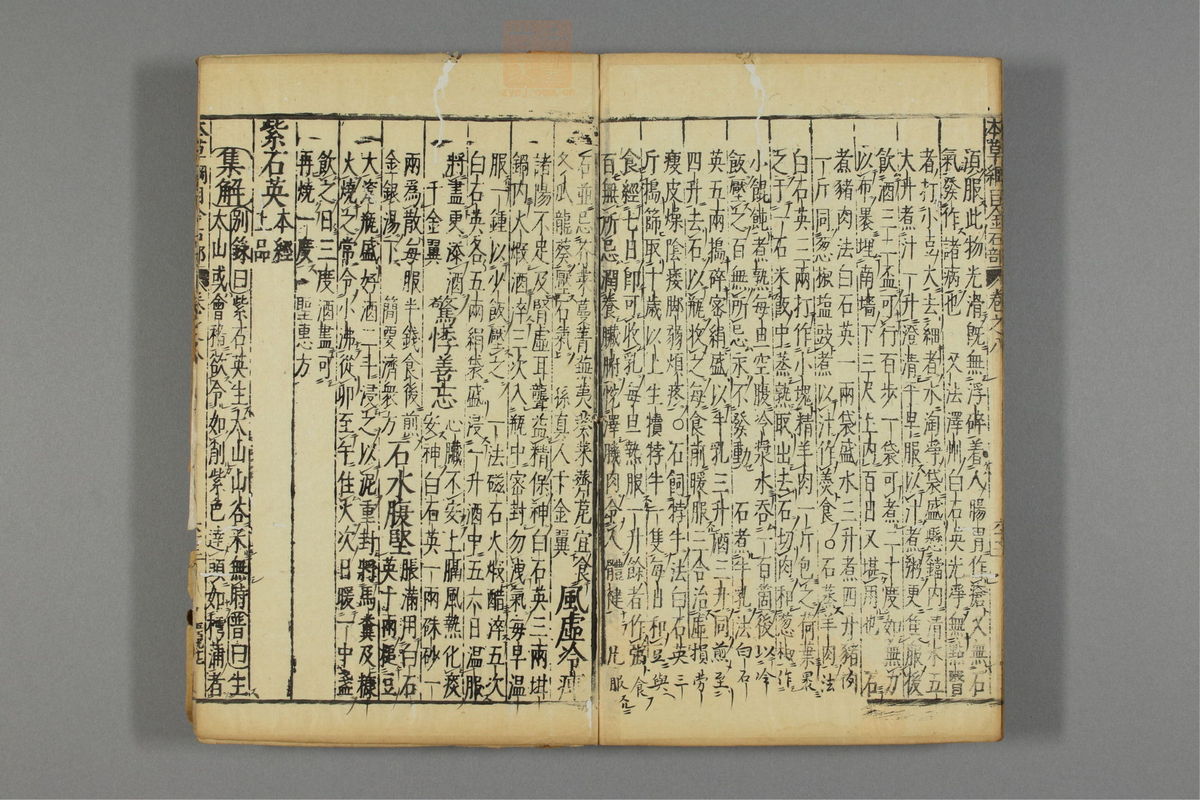 須服此物光滑旣無浮碎着人腸胃作瘡又無石
氣發作諸病也 又法澤州白石英光淨無點翳者
者打小豆大去細者水淘淨袋盛懸鐺内清水五
大升煮汁一升澄清平早服以汁煮粥更佳服後
飲酒三二盃可行百步一袋可煮二十度如無力
以布褁埋南墻下三尺土内百日又堪用也 石
煮豬肉法白石英一兩袋盛水三升煮四升豬肉
一斤同葱椒塩豉煮以汁作羹食○石蒸羊肉法
白石英三兩打作小塊精羊肉一斤包之荷葉褁
之于一石米飯中蒸熟取出去石切肉和葱椒作
小餛飩煮熟每旦空腹冷漿水吞一百箇後以冷
飯壓之百無所忌永不發動 石煮牛乳法白石
英五兩搗碎密絹盛以牛乳三升酒三升同煎至
四升去石以瓶收之每食前暖服二合治虛損勞
瘦皮燥陰痿脚弱煩疼○石飼牸牛法白石英三
斤搗篩取十歲以上生犢牸牛一隻每日和豆與
食經七日即可收乳每旦熱服一升餘者作粥食
百無所忌潤養臟腑悅澤肌肉令人體健 凡服
石並忌芥菜蔓菁蕪荑葵菜薺苨宜食
冬瓜龍葵壓石氣 孫真人千金翼 風虛冷痺
諸陽不足及腎虛耳聾益精保神白石英三兩坩
鍋内火煅酒淬三次入瓶中密封勿洩氣毎早温
服一鍾以少飯壓之 一法磁石火煅醋淬五次
白石英各五兩絹袋盛浸一升酒中五六日温服
將盡更添酒 千金翼 驚悸善忘 心臟不安上膈風熱化痰
安神白石英一兩硃砂一
兩爲散每服半錢食後煎
金銀湯下 簡要濟衆方 石水腹堅 脹滿用白石
英十兩搥豆
大瓷瓶盛好酒二斗浸之以泥重封將馬糞及糠
火燒之常令小沸從卯至午住火次日暖一中盞
飲之日三度酒盡可
再燒一度 聖惠方
紫石英 本經
上品
集解 別錄曰紫石英生太山山谷采無時普曰生
太山或會稽欲令如削紫色達頭如樗蒲者
本草綱目金石部 卷之八